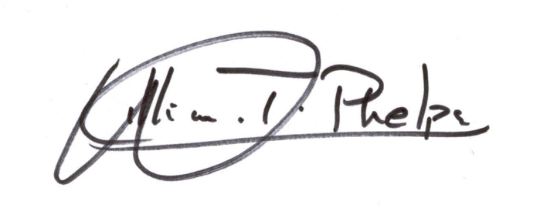 William. T. Phelps